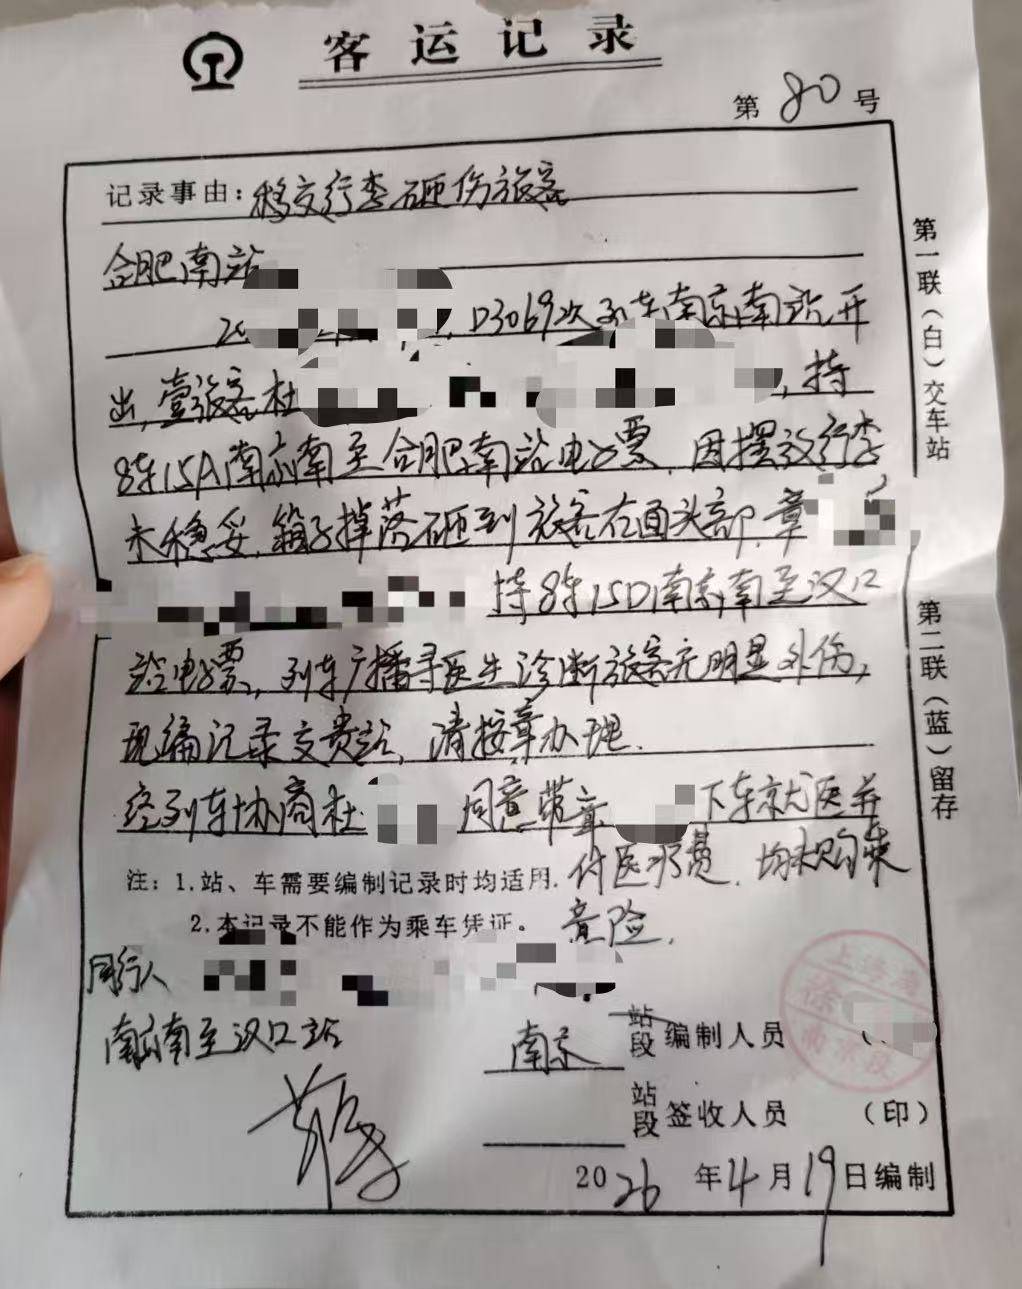 客运记录
第80号
记录事由:移交行李砸伤旅客
合肥南站
20 ，D3069次列车南京南站开
出,壹旅客杜 ,持
8车15A南京南至合肥南站电子票,因摆放行李
未稳妥,箱子掉落砸到旅客右面头部,章
持8车15D南京南至汉口
站电子票,列车广播寻医生诊断旅客无明显外伤,
现编记录交贵站,请按章办理.
经列车协商杜 同意带章 下车就医并
付医疗费.均未购乘
意险.
注:1.站、车需要编制记录时均适用.
2.本记录不能作为乘车凭证。
同行人
南京南至汉口站
南京 站段 编制人员
站段 签收人员 (印)
2026年4月19日编制
第一联(白)交车站
第二联(蓝)留存
上海
徐
南京段